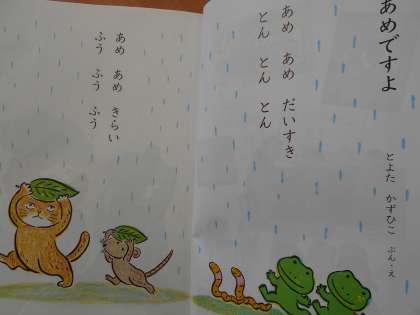 あめですよ
とよた かずひこ ぶん・え
あめ あめ だいすき
とん とん とん
あめ あめ きらい
ふう ふう ふう